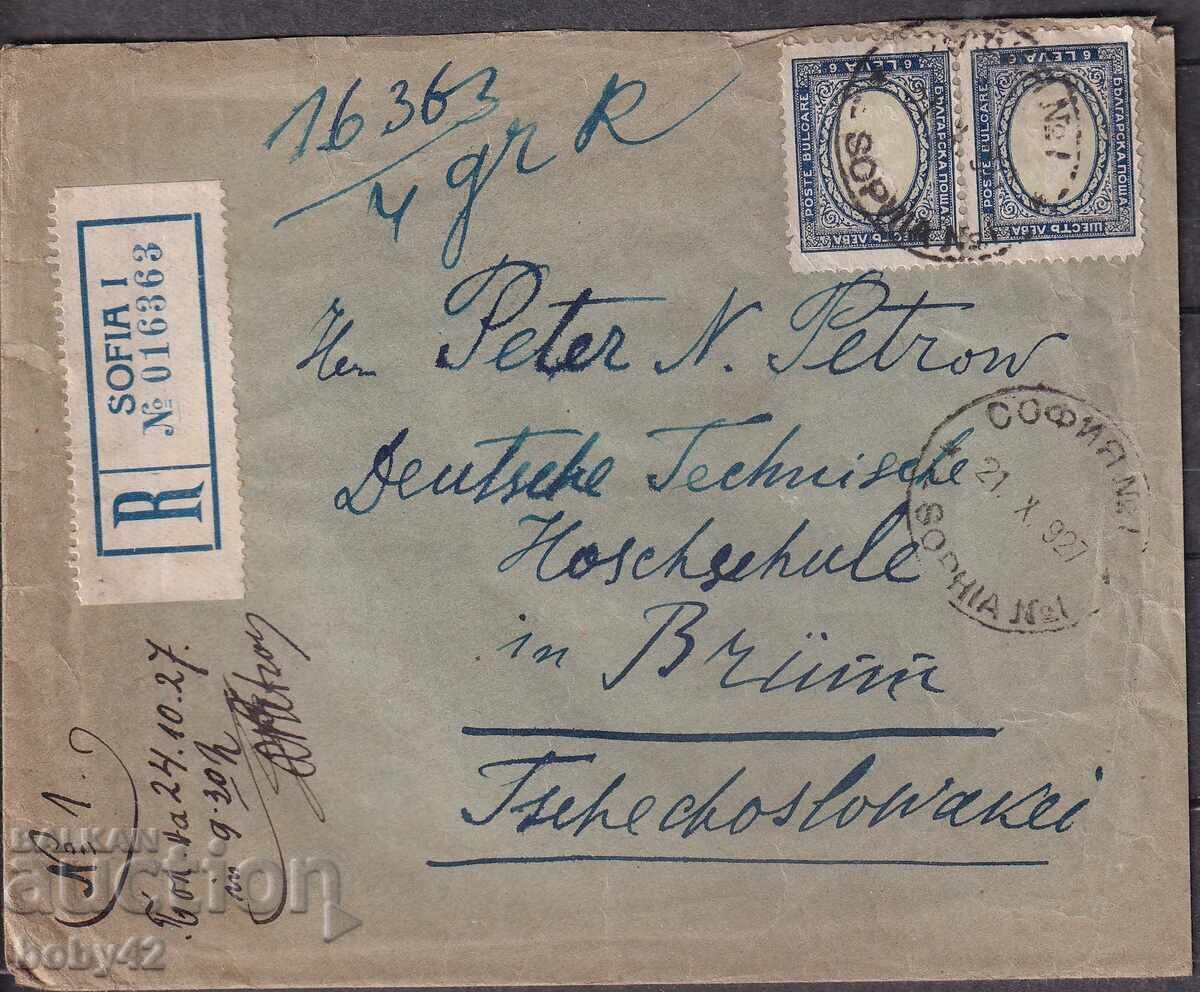 16363
4 gr R
6 LEVA 6
POSTE BULGARE
БЪЛГАРСКА ПОЩА
ШЕСТЬ ЛЕВА
6 LEVA 6
POSTE BULGARE
БЪЛГАРСКА ПОЩА
ШЕСТЬ ЛЕВА
№ 1
SOPHIA №1
R
SOFIA I
№ 016363
Herr Peter N. Petrow
Deutsche Technische
Hoschschule
in Brünn
Tschechoslowakei
СОФИЯ №1
21. X. 927
SOPHIA №1
№ 1.
на 24.10.27.
9.30 h
BALKAN
auction
boby42